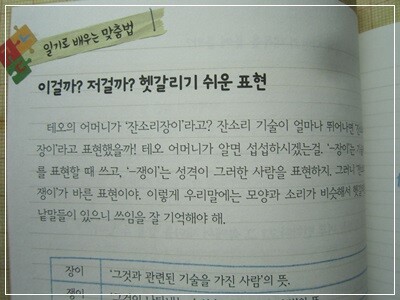 일기로 배우는 맞춤법
이걸까? 저걸까? 헷갈리기 쉬운 표현
테오의 어머니가 '잔소리장이'라고? 잔소리 기술이 얼마나 뛰어나면
장이'라고 표현했을까! 테오 어머니가 알면 섭섭하시겠는걸. '-장이'는
를 표현할 때 쓰고, '-쟁이'는 성격이 그러한 사람을 표현하지. 그러니
쟁이'가 바른 표현이야. 이렇게 우리말에는 모양과 소리가 비슷해서
낱말들이 있으니 쓰임을 잘 기억해야 해.
장이 '그것과 관련된 기술을 가진 사람'의 뜻.
쟁이